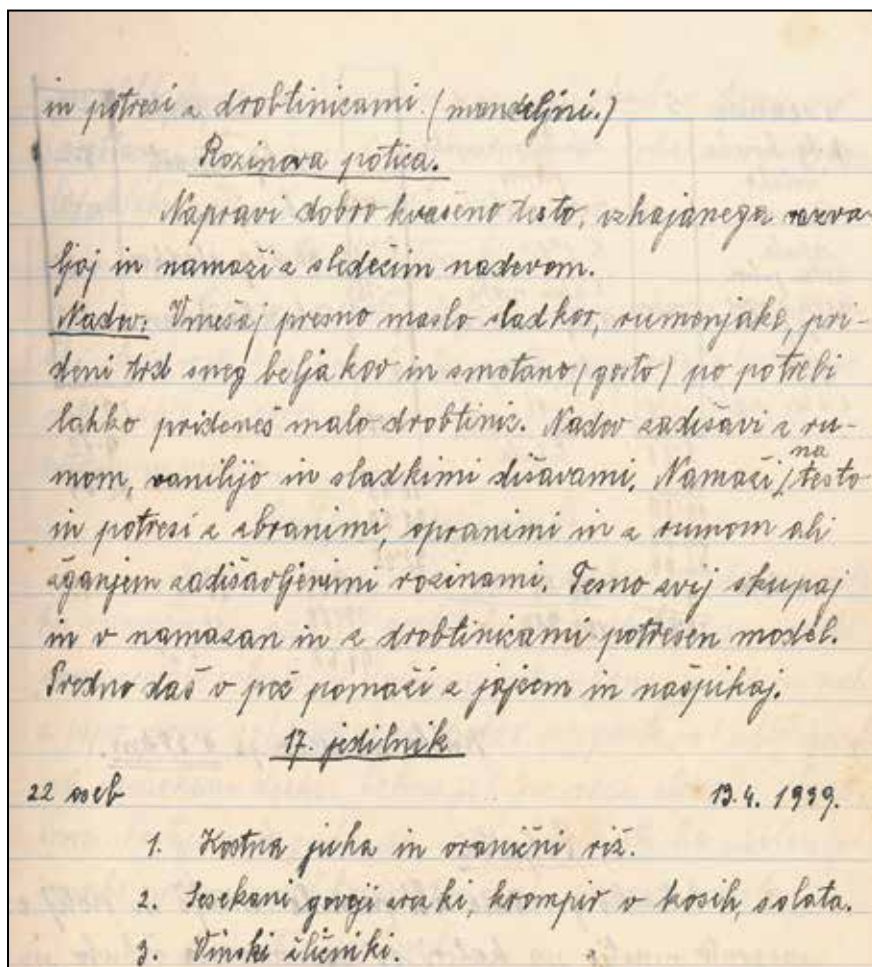 in potresi z drobtinicami. (mandeljni.)
Rozinova potica.
Napravi dobro kvašeno testo, izhajanega razva-
ljaj in namaži z sledečim nadevom.
Nadev: Vmešaj presno maslo sladkor, rumenjake, pri-
deni trd sneg beljakov in smetano (gosto) po potrebi
lahko prideneš malo drobtinic. Nadev zadišavi z ru-
mom, vanilijo in sladkimi dišavami. Namaži na testo
in potresi z zbranimi, opranimi in z rumom ali
žganjem zadišavljenimi rozinami. Tesno zvij skupaj
in v namazan in z drobtinicami potresen model.
Predno daš v peč pomaži z jajcem in našpikaj.
17. jedilnik
22 oseb 13.4. 1939.
1. Kostna juha in vranični riž.
2. Sesekani goveji zrezki, krompir v kosih, solata.
3. Vinski žličniki.